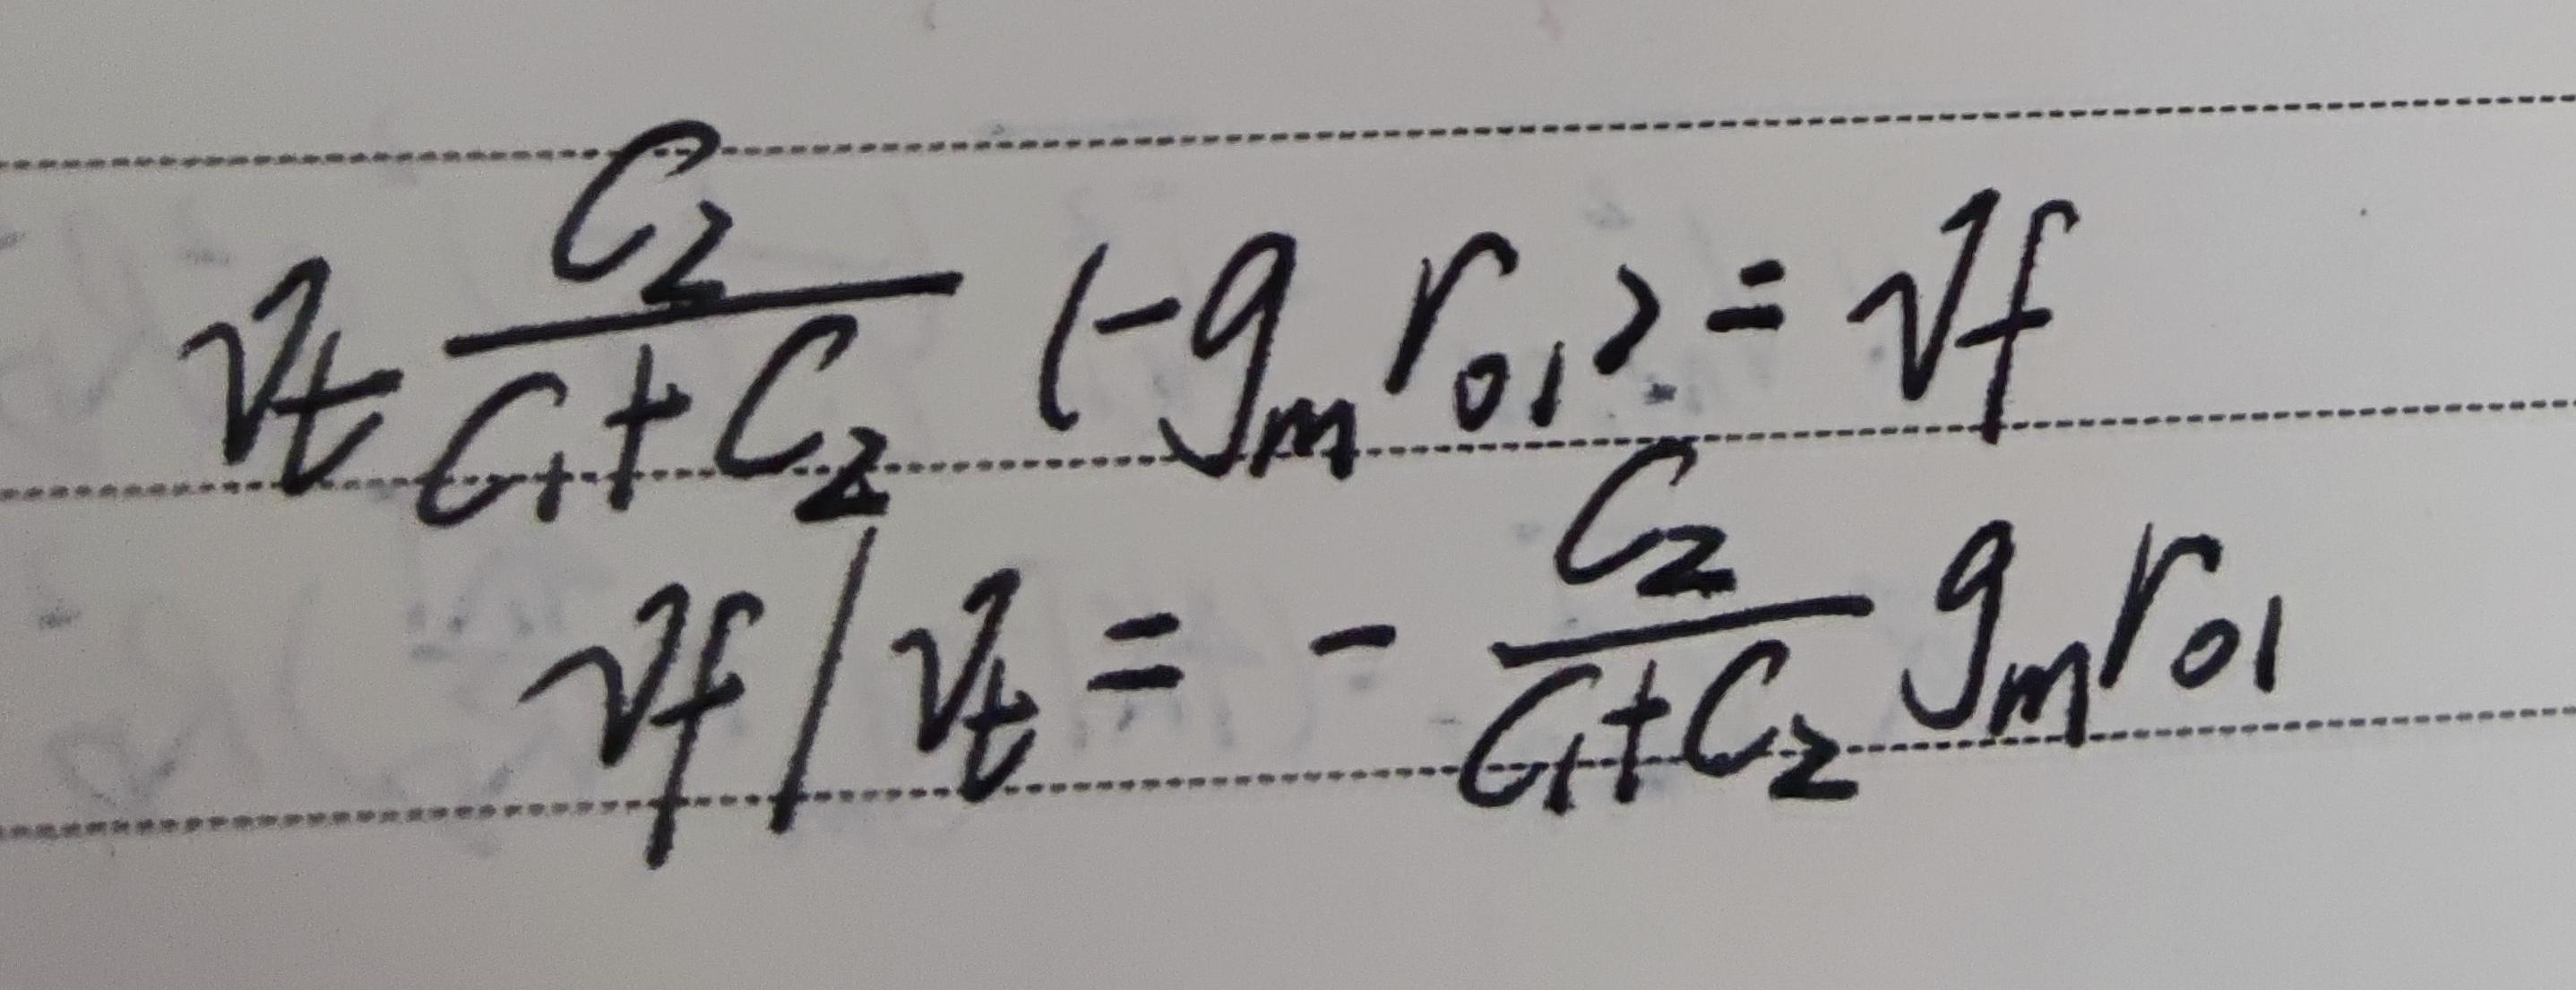 v_t \frac{C_2}{C_1+C_2} (-g_m r_{o1}) = v_f
v_f / v_t = - \frac{C_2}{C_1+C_2} g_m r_{o1}